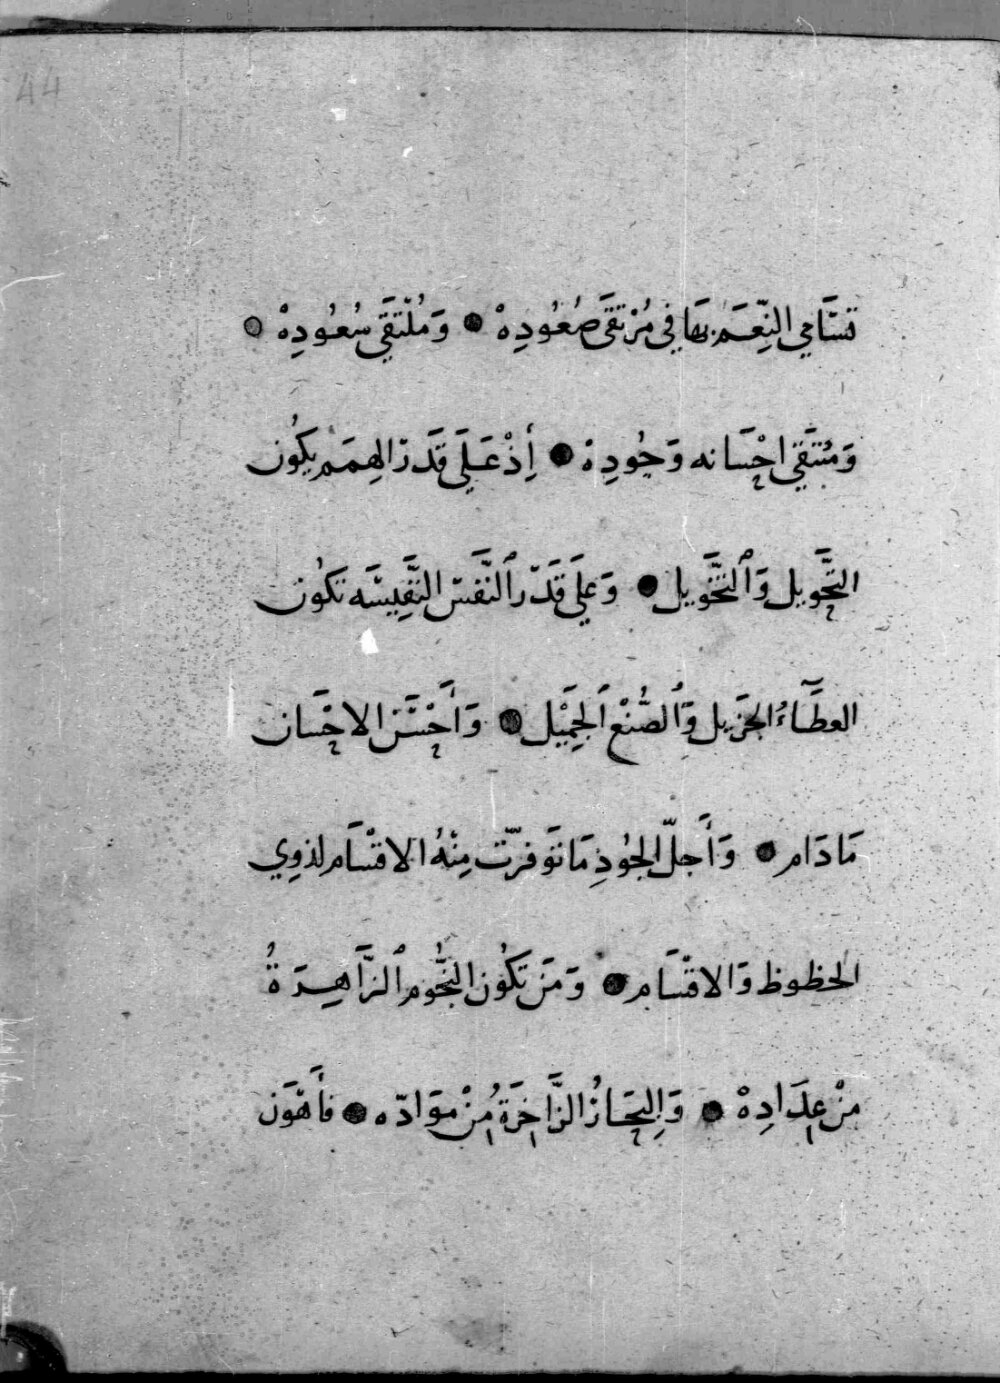 44
تسَّامي النِّعَم بهَا في مُرْتقَى صُعُودِهْ ● وَمُلْتقَي سُعُودِهْ ●
وَمُنتقَي احْسَانه وَجُودِهْ ● أِذْ عَلَي قَدَر الهِمَم يكوُن
التخَّويل وَالتخَّويل ● وَعلَي قَدَر النَّفسْ النَّفِيسَه تكوُن
العطَّاءُ الجزَيل وَالصُّنْعُ الجَمِيْل ● وَأحْسَن الاحْسَان
مَا دَام ● وَأَجلّ الجوُدِ مَا توَفرّت مِنْهُ الاقْسَام لذوِي
الحظوظ وَالاقْسَام ● وَمَن تكوُن النجُّوم الزَّاهِرَةُ
منْ عِدَادِهْ ● وَالِبحَارُ الزَّاخِرَةُ مِنْ موَادّه ● فأَهْوَن